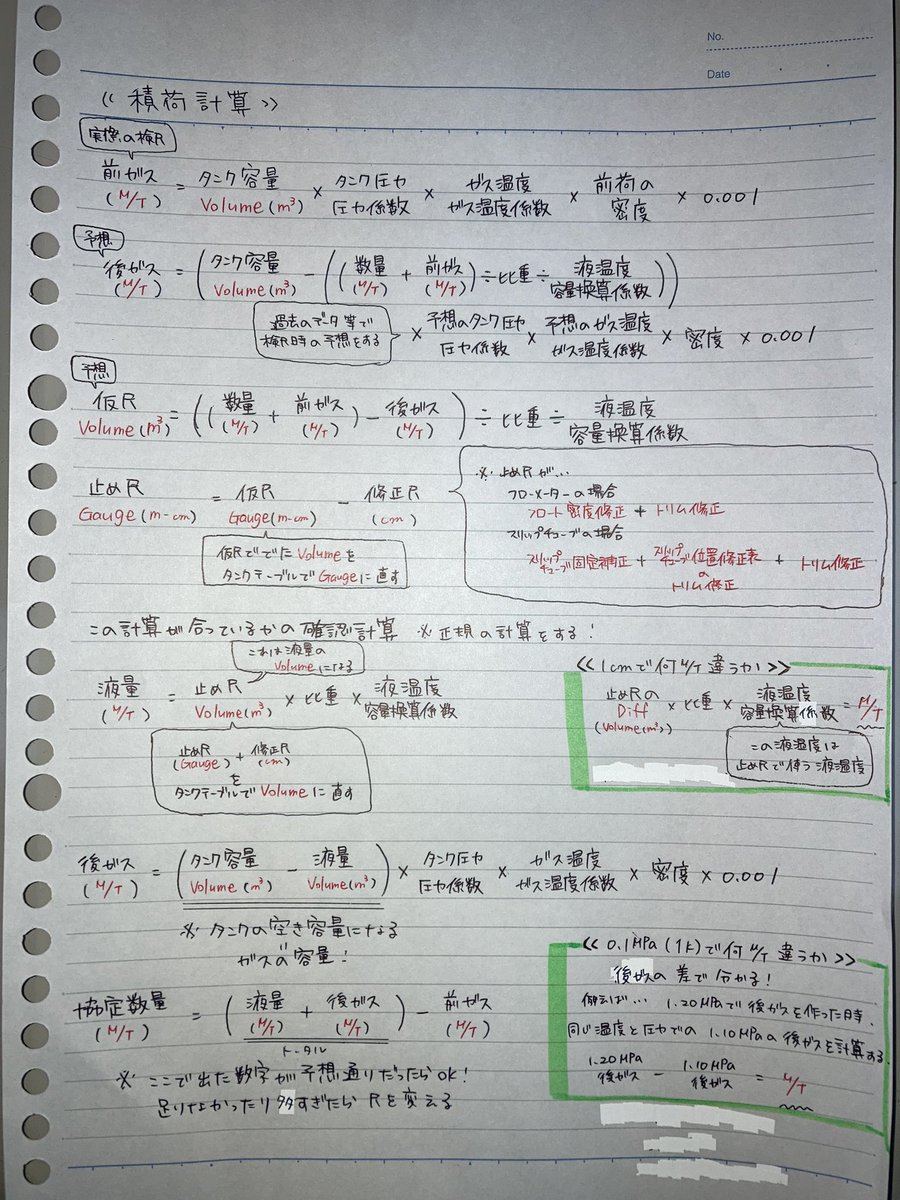 No.
Date
《 積荷計算 》
実際の検尺
前ガス (M/T) = タンク容量 Volume(m³) × タンク圧力 圧力係数 × ガス温度 ガス温度係数 × 前荷の密度 × 0.001
予想
後ガス (M/T) = (タンク容量 Volume(m³) - ((数量 (M/T) + 前ガス (M/T)) ÷ 比重 ÷ 液温度 容量換算係数))
過去のデータ等で
検尺時の予想をする
× 予想のタンク圧力 圧力係数 × 予想のガス温度 ガス温度係数 × 密度 × 0.001
予想
仮尺 Volume(m³) = ((数量 (M/T) + 前ガス (M/T)) - 後ガス (M/T)) ÷ 比重 ÷ 液温度 容量換算係数
止め尺 Gauge(m-cm) = 仮尺 Gauge(m-cm) - 修正尺 (cm)
仮尺ででた Volumeを
タンクテーブルで Gaugeに直す
※ 止め尺が…
フローメーターの場合
フロート密度修正 + トリム修正
スリップチューブの場合
スリップチューブ固定補正 + スリップチューブ位置修正表のトリム修正 + トリム修正
この計算が合っているかの確認計算 ※正規の計算をする!
これは液量の
Volumeになる
液量 (M/T) = 止め尺 Volume(m³) × 比重 × 液温度 容量換算係数
止め尺 (Gauge) + 修正尺 (cm)
を
タンクテーブルで Volumeに直す
《 1cmで何M/T違うか 》
止め尺の Diff (Volume(m³)) × 比重 × 液温度 容量換算係数 = M/T
この液温度は
止め尺で使う液温度
後ガス (M/T) = (タンク容量 Volume(m³) - 液量 Volume(m³)) × タンク圧力 圧力係数 × ガス温度 ガス温度係数 × 密度 × 0.001
※ タンクの空き容量になる
ガスの容量!
協定数量 (M/T) = (液量 (M/T) + 後ガス (M/T)) - 前ガス (M/T)
トータル
※ ここで出た数字が予想通りだったらOK!
足りなかったり多すぎたら尺を変える
《 0.1MPa(1K)で何M/T違うか 》
後ガスの差で分かる!
例えば… 1.20MPaで後ガスを作った時、
同じ温度と圧力での 1.10MPaの後ガスを計算する。
1.20MPa 後ガス - 1.10MPa 後ガス = M/T